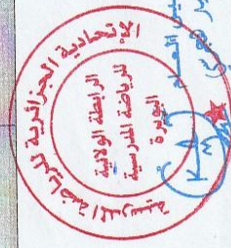 الإتحادية الجزائرية للرياضة المدرسية
الرابطة الولائية
للرياضة المدرسية
البويرة